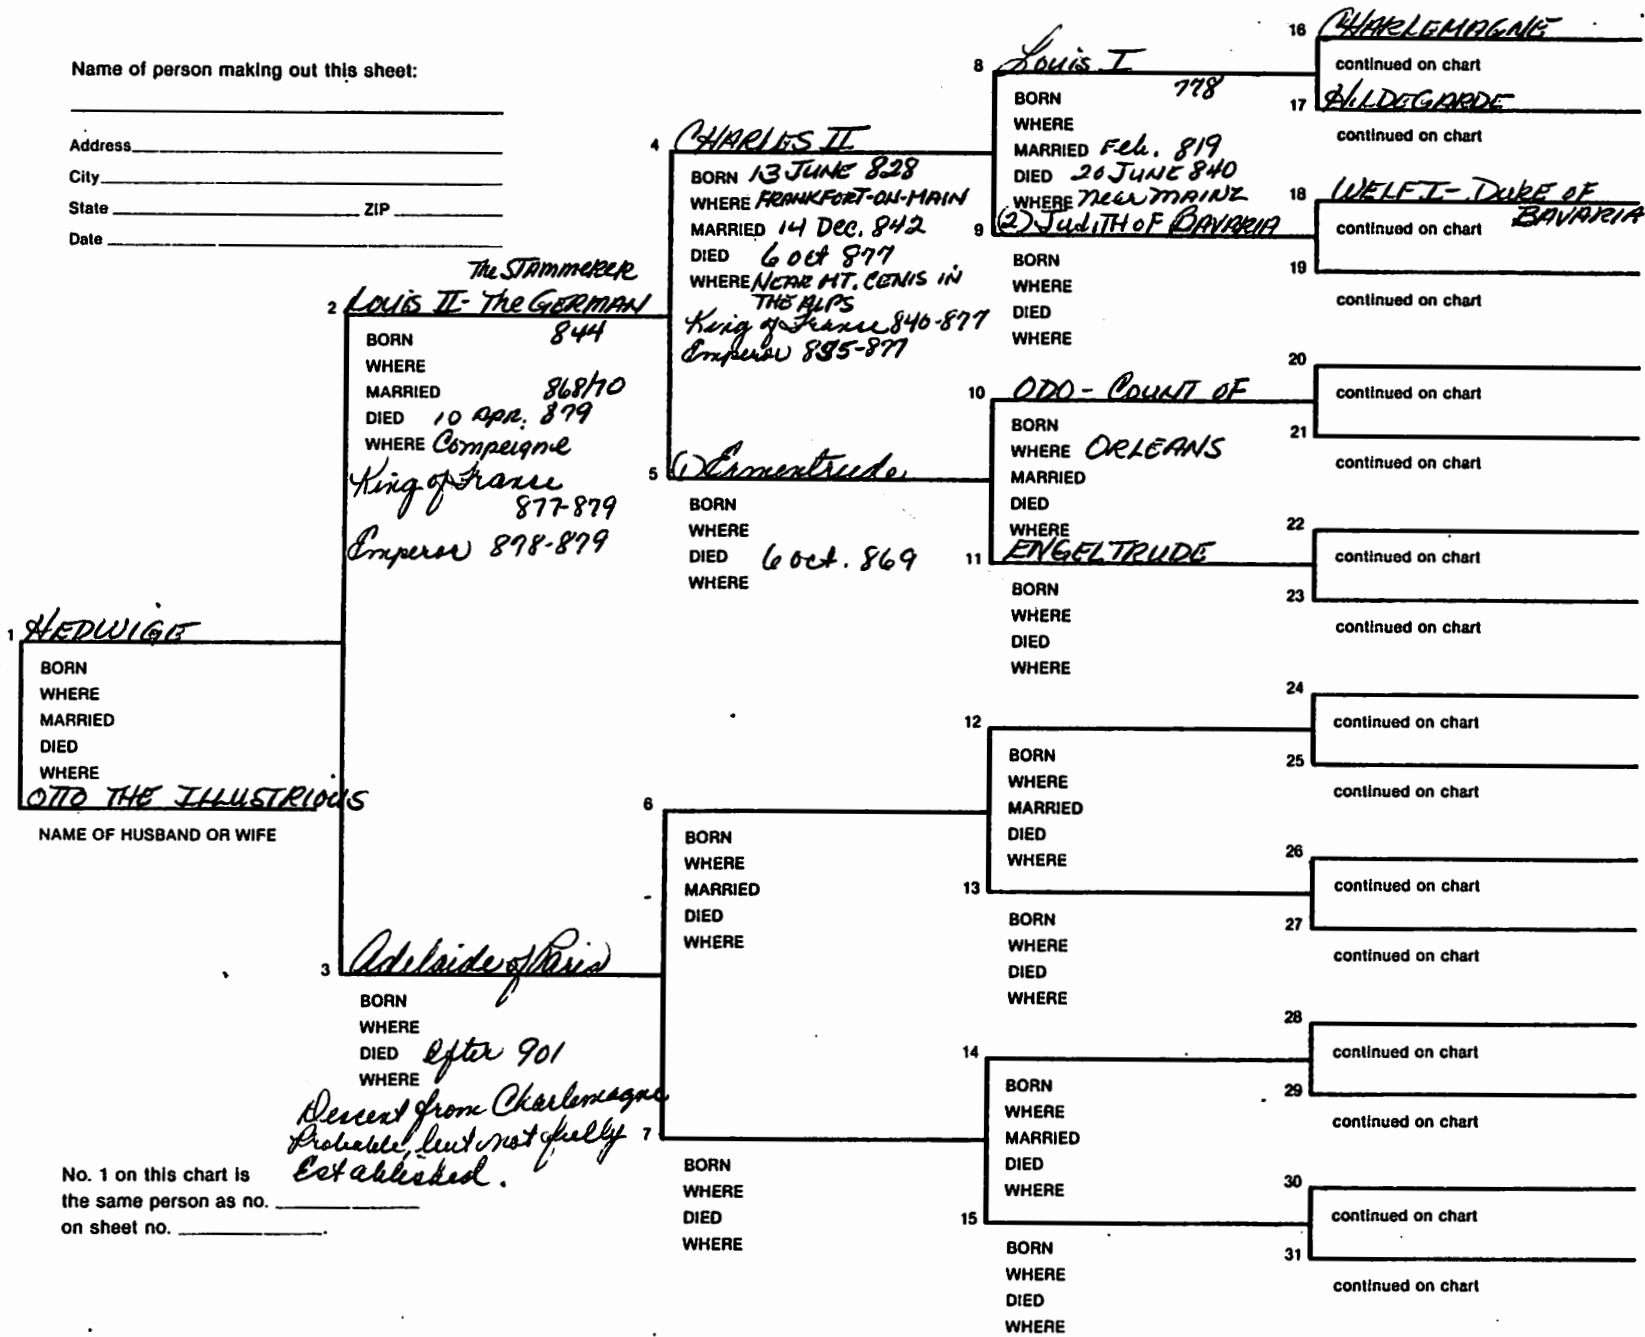 Name of person making out this sheet:
Address
City
State ZIP
Date
1 HEDWIGE
BORN
WHERE
MARRIED
DIED
WHERE
OTTO THE ILLUSTRIOUS
NAME OF HUSBAND OR WIFE
The STAMMERER
2 Louis II - The GERMAN
BORN 844
WHERE
MARRIED 868/70
DIED 10 APR. 879
WHERE Compeigne
King of France
877-879
Emperor 878-879
3 Adelaide of Paris
BORN
WHERE
DIED after 901
WHERE
Descent from Charlemagne
Probable, but not fully
Established.
No. 1 on this chart is
the same person as no.
on sheet no.
4 CHARLES II
BORN 13 JUNE 828
WHERE FRANKFORT-ON-MAIN
MARRIED 14 Dec. 842
DIED 6 oct 877
WHERE NEAR MT. CENIS IN
THE ALPS
King of France 840-877
Emperor 895-877
5 (1) Ermentrude
BORN
WHERE
DIED 6 oct. 869
WHERE
6
BORN
WHERE
MARRIED
DIED
WHERE
7
BORN
WHERE
DIED
WHERE
8 Louis I
BORN 778
WHERE
MARRIED Feb. 819
DIED 20 JUNE 840
WHERE near MAINZ
9 (2) JudITH oF BAVARIA
BORN
WHERE
DIED
WHERE
10 ODO - COUNT OF
BORN
WHERE ORLEANS
MARRIED
DIED
WHERE
11 ENGELTRUDE
BORN
WHERE
DIED
WHERE
12
BORN
WHERE
MARRIED
DIED
WHERE
13
BORN
WHERE
DIED
WHERE
14
BORN
WHERE
MARRIED
DIED
WHERE
15
BORN
WHERE
DIED
WHERE
16 CHARLEMAGNE
continued on chart
17 HILDEGARDE
continued on chart
18 WELF I - DUKE OF
BAVARIA
continued on chart
19
continued on chart
20
continued on chart
21
continued on chart
22
continued on chart
23
continued on chart
24
continued on chart
25
continued on chart
26
continued on chart
27
continued on chart
28
continued on chart
29
continued on chart
30
continued on chart
31
continued on chart